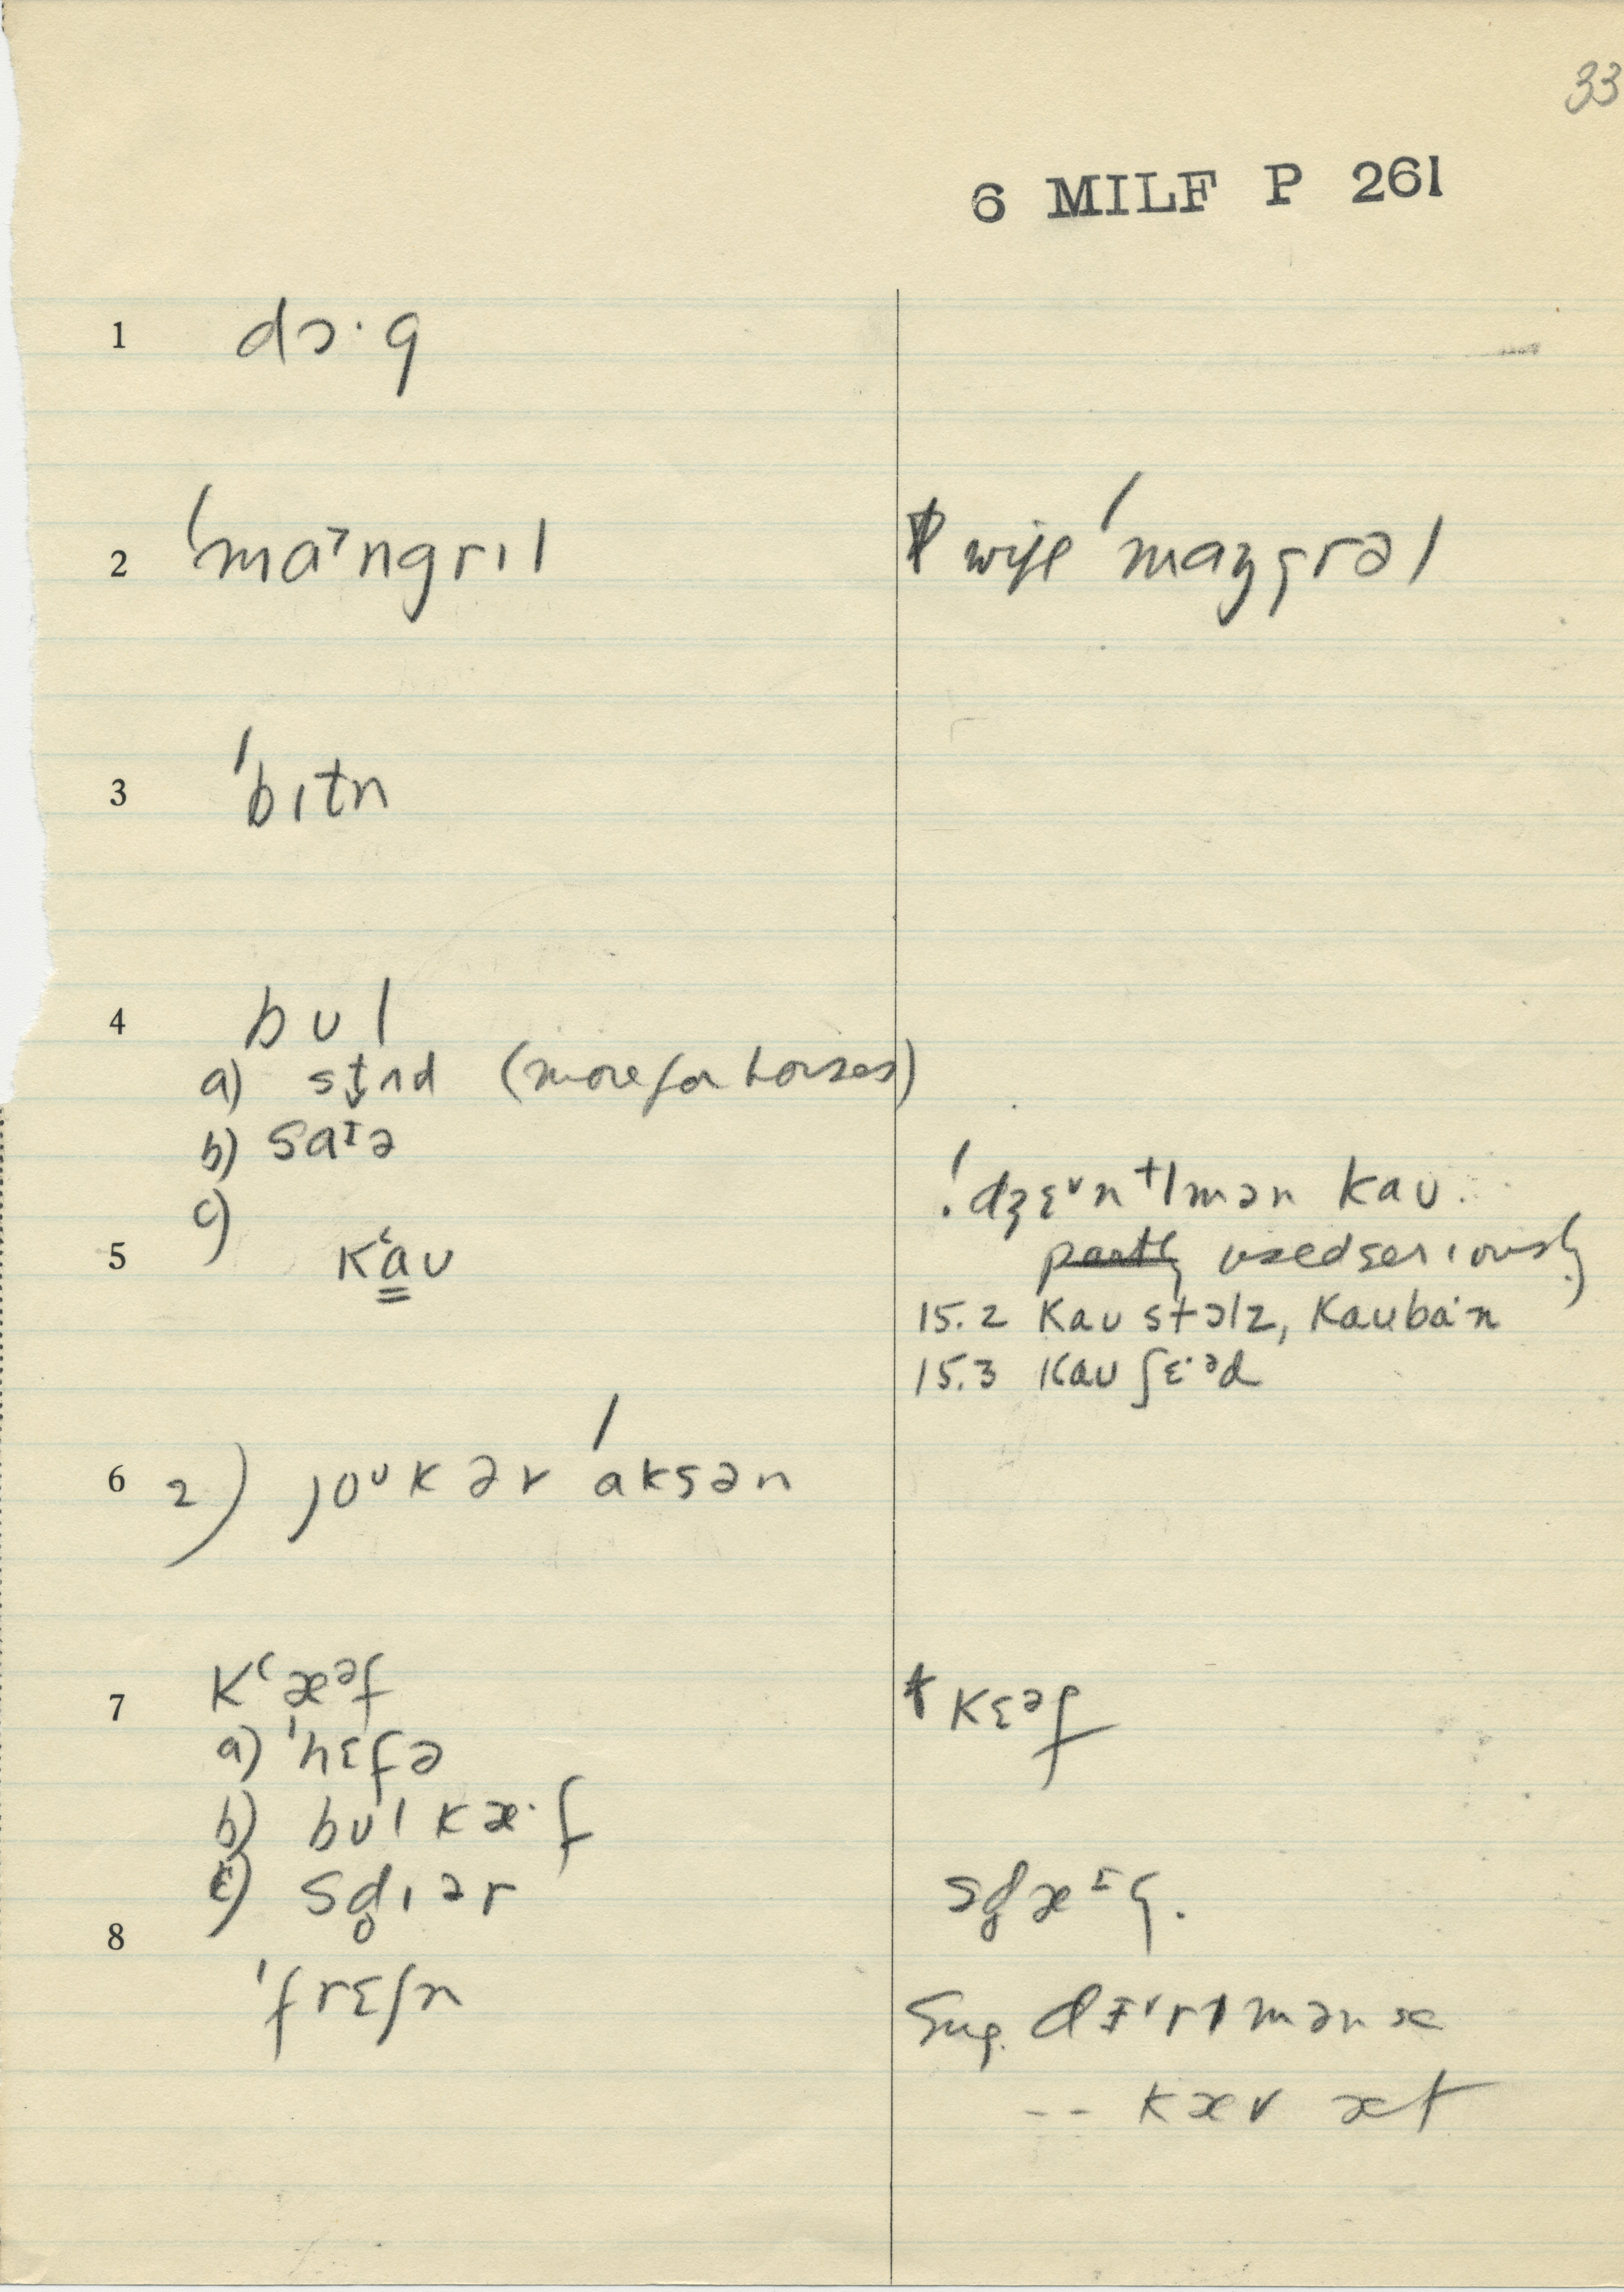 33
6 MILF P 261
1 dɔ·g
2 ˈmaˑngrɪl
wife ˈmaŋgrəl
3 ˈbɪtn
4 bʊl
a) stʌd (more for horses)
b) saɪə
c)
!ˈdʒɛˇntlmən kaʊ.
5 kʻaʊ
partly used seriously
15.2 kaʊ stɔlz, kaʊbaˑn
15.3 kaʊ ʃɛˑəd
6 2) joᵘk ər ˈaksən
7 kʻæᵊf
kɛᵊf
a) ˈhɛfə
b) bʊl kæ·f
c) sd̥ɪər
sd̥æɪg.
8 ˈfrɛʃn
Sug.
-- kæv æt